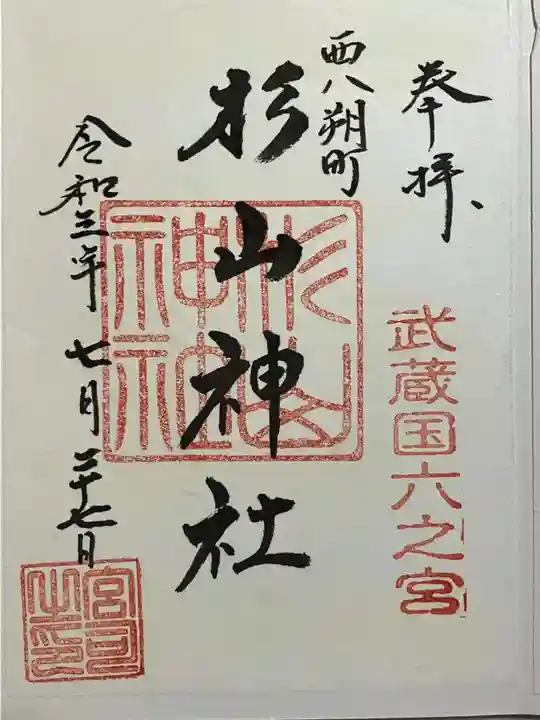 奉拝
武蔵国六之宮
西八朔町
杉山神社
令和三年 七月二十七日
杉山神社
宮司之印